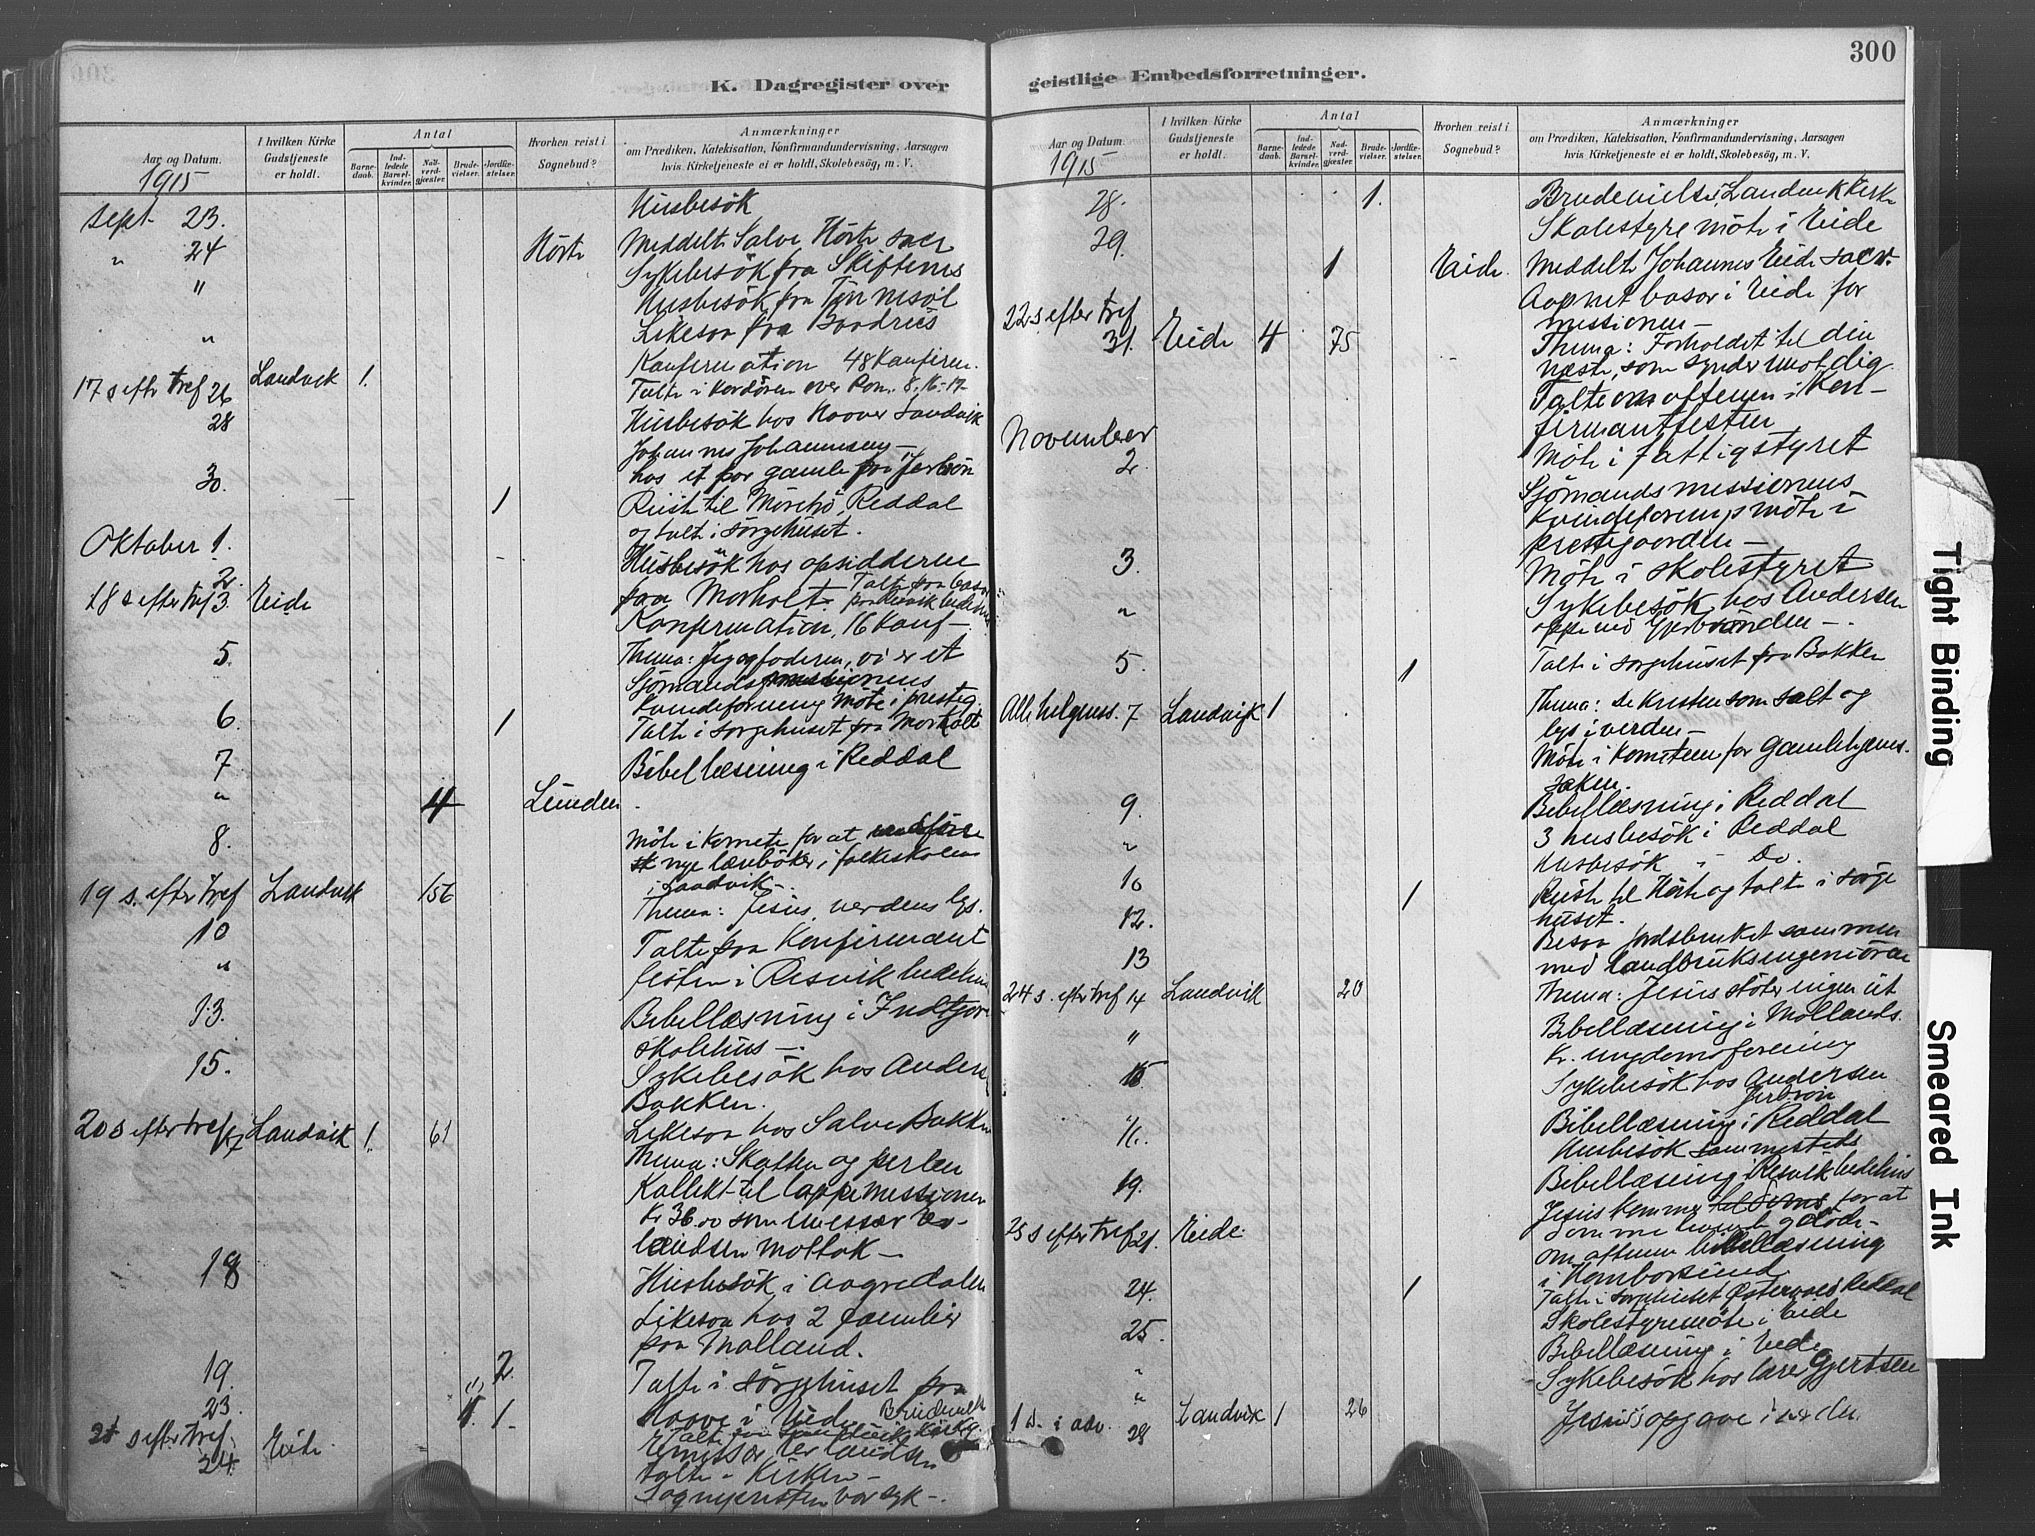 K. Dagregister over
Aar og Datum.
I hvilken Kirke Gudstjeneste er holdt.
Antal
Barnedaab.
Indledede Barselkvinder.
Nadverdgjæster.
Brudevielser.
Jordfæstelser.
Hvorhen reist i Sognebud?
Anmærkninger
om Prædiken, Katekisation, Konfirmandundervisning, Aarsagen
hvis Kirketjeneste ei er holdt, Skolebesög, m. V.
1915
Sept. 23. Husbesök
" 24 Hörte Meddelt Salve Hörte sacr
Sykebesök fra Skiftenes
" Husbesök fra
" Likesaa fra
Konfirmation 48 Konfirm.
17 s efter tref 26 Landvik 1. Talte i kordören over Rom. 8. 16-17-
28 Husbesök hos Landvik
Johannes Johannesen
30. hos et par gamle
1 Reiste til Reddal
og talt i sörgehuset.
Oktober 1. Husbesök hos opsidderne
2. paa Morholt
18 s efter tref 3. Eide Konfirmation, 16 Konf-
5. Thema: Jeg og faderen, vi er et
Sjömandsmissionens
Kvindeforening Möte i prestg.
6. 1 Talte i sorgehuset fra Morholt
7 Bibellæsning i Reddal
" 4 Lunden
8. Möte i komite for at
nye læseböker i folkeskolen
i Landvik-
19 s. efter tref Landvik 156 Thema: Jesus, verdens lys.
10 Talte paa Konfirmant
" festen i Resvik bedehus
13. Bibellæsning i
skolehus -
15. Sykebesök hos Anders
Bakken.
20 s efter tref 17 Landvik 1. 61 Likesaa hos Salve Bakken
Thema: Skatten og perlen
Kollekt til lappemissionen
Kr 36.00 som emissær
mottok -
18 Husbesök i
Likesaa hos 2 familier
paa Molland.
19. 2 Talte i sörgehuset fra
23. 1. 1. i Eide Brudevielse
21 s efter tref. 24. Eide Emissær
talte i Kirken -
Sognepresten var syk -.
geistlige Embedsforretninger.
300
Aar og Datum.
I hvilken Kirke Gudstjeneste er holdt.
Antal
Barnedaab.
Indledede Barselkvinder.
Nadverdgjæster.
Brudevielser.
Jordfæstelser.
Hvorhen reist i Sognebud?
Anmærkninger
om Prædiken, Katekisation, Konfirmandundervisning, Aarsagen
hvis Kirketjeneste ei er holdt, Skolebesög, m. V.
1915
28. 1. Brudevielse i Landvik Kirke
29. Skolestyremöte i Eide
1 Eide. Meddelt Johannes Eide sacr.
Aapnet basar i Eide for
missionen -
22 s efter tref 31. Eide 4 75 Thema: Forholdet til din
næste, som synder mot dig.
Talte om aftenen i Kon-
firmantfesten
November
2. Möte i fattigstyret
Sjömandsmissionens
Kvindeforenings möte i
prestegaarden -
3. Möte i skolestyret
" Sykebesök hos Andersen
oppe ved
5. 1 Talte i sorgehuset fra Bakken
Allehelgenss. 7 Landvik 1 Thema: De Kristne som salt og
lys i verden -
Möte i Komiteen for Gamlehjems.
saken.
9. Bibellæsning i Reddal
" 3 husbesök i Reddal
10 Husbesök " Do.
12. 1 Reiste til Hörte og talte i sörge
huset.
13 Besaa jordsbruket sammen
med landbruksingeniören
24 s. efter tref 14 Landvik 20 Thema: Jesus stöter ingen ut
" Bibellæsning i Mollands
Kr. ungdomsforening
15 Sykebesök hos Andersen
16. Bibellæsning i Reddal
Husbesök sammesteds
19. Bibellæsning i Resvik bedehus
25 s efter tref 21. Eide. Jesus kommer til for at
dömme levende og döde -
om aftenen bibellæsning
i Homborsund
24. 1 Talte i sorgehuset Reddal
25. Skolestyremöte i Eide
" Bibellæsning i Eide
" Sykebesök hos Lars Gjertsen
1 s. i adv. 28 Landvik 1 26 Jesus's opgave i verden.
Tight Binding
Smeared Ink